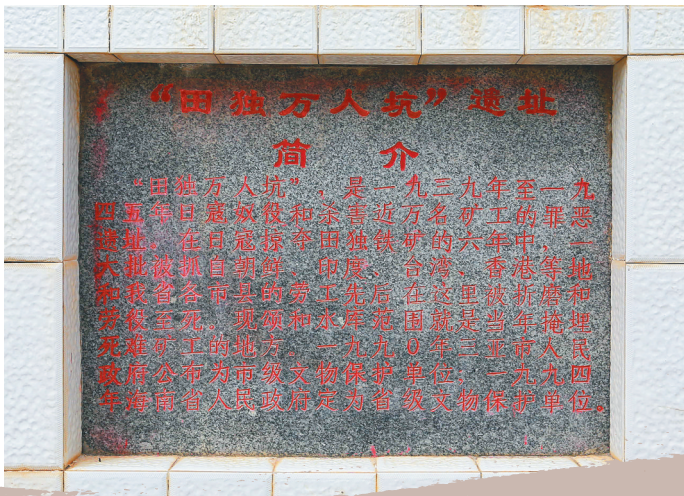 “田独万人坑”遗址
简 介
“田独万人坑”，是一九三九年至一九
四五年日寇奴役和杀害近万名矿工的罪恶
遗址。在日寇掠夺田独铁矿的六年中，一
大批被抓自朝鲜、印度、台湾、香港等地
和我省各市县的劳工先后在这里被折磨和
劳役至死。现颂和水库范围就是当年掩埋
死难矿工的地方。一九九0年三亚市人民
政府公布为市级文物保护单位，一九九四
年海南省人民政府定为省级文物保护单位。